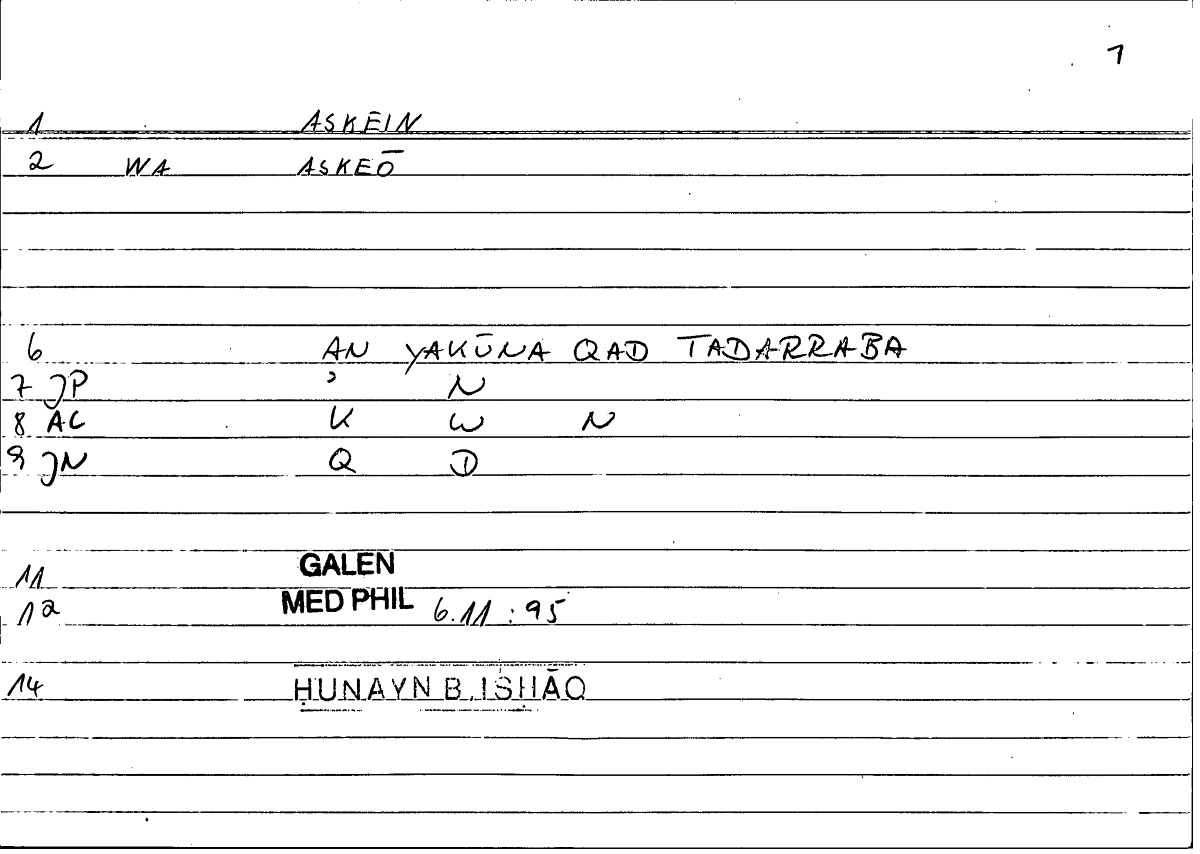 1
1 ASKEIN
2 WA ASKEŌ
6 AN YAKŪNA QAD TADARRABA
7 JP ʾ N
8 AC K W N
9 JN Q D
11 GALEN
12 MED PHIL 6.11 : 95
14 ḤUNAYN B. ISḤĀQ